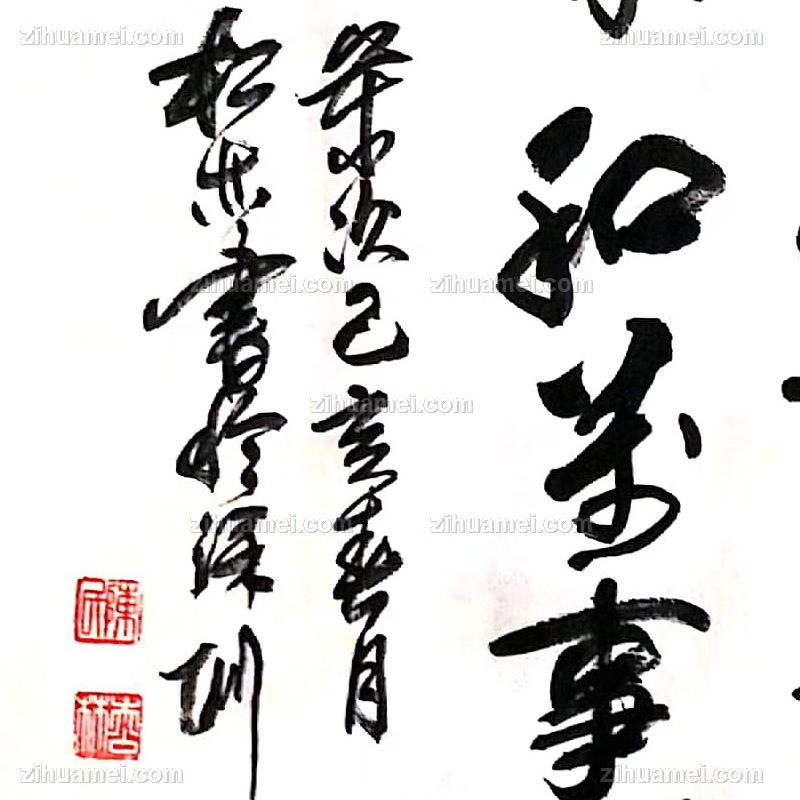 和萬事
歲次己亥春月
書於深圳
zihuamei.com
zihuamei.com
zihuamei.com
zihuamei.com
zihuamei.com
zihuamei.com
zihuamei.com
zihuamei.com
zihuamei.com